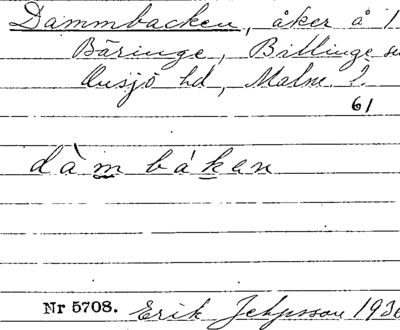 Dammbacken, åker å 1
Bäringe, Billinge sn
Onsjö hd, Malm. l.
61
dàm bákən
Nr 5708. Erik Jeppsson 1936